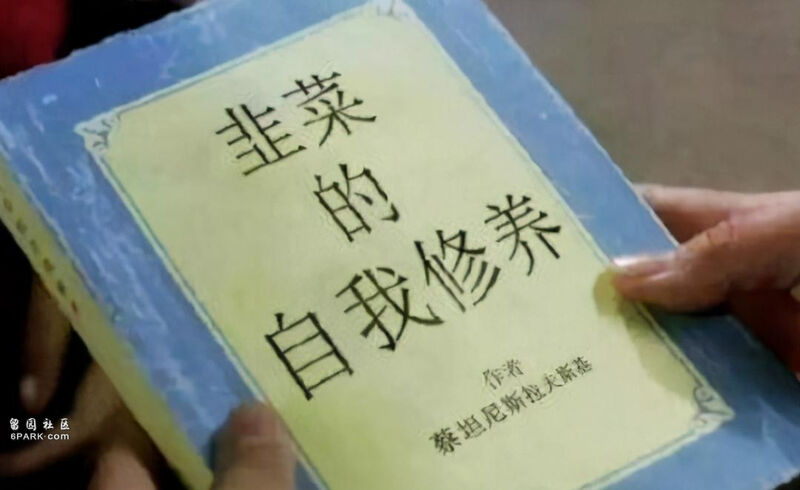 韭菜
的
自我修养
作者
蔡坦尼斯拉夫斯基
留园社区
6PARK.com